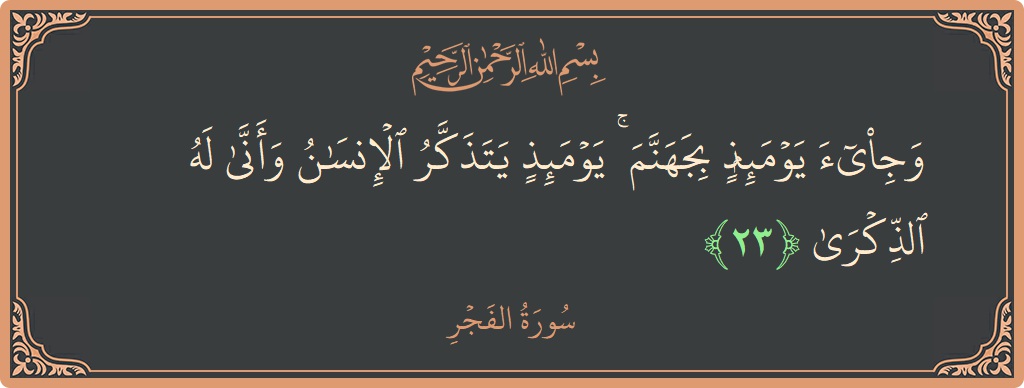 بِسْمِ اللهِ الرَّحْمٰنِ الرَّحِيْمِ
وَجِا۟ىٓءَ يَوْمَئِذٍۭ بِجَهَنَّمَ ۚ يَوْمَئِذٍ يَتَذَكَّرُ ٱلْإِنسَـٰنُ وَأَنَّىٰ لَهُ
ٱلذِّكْرَىٰ ﴿٢٣﴾
سُورَةُ الفَجْرِ